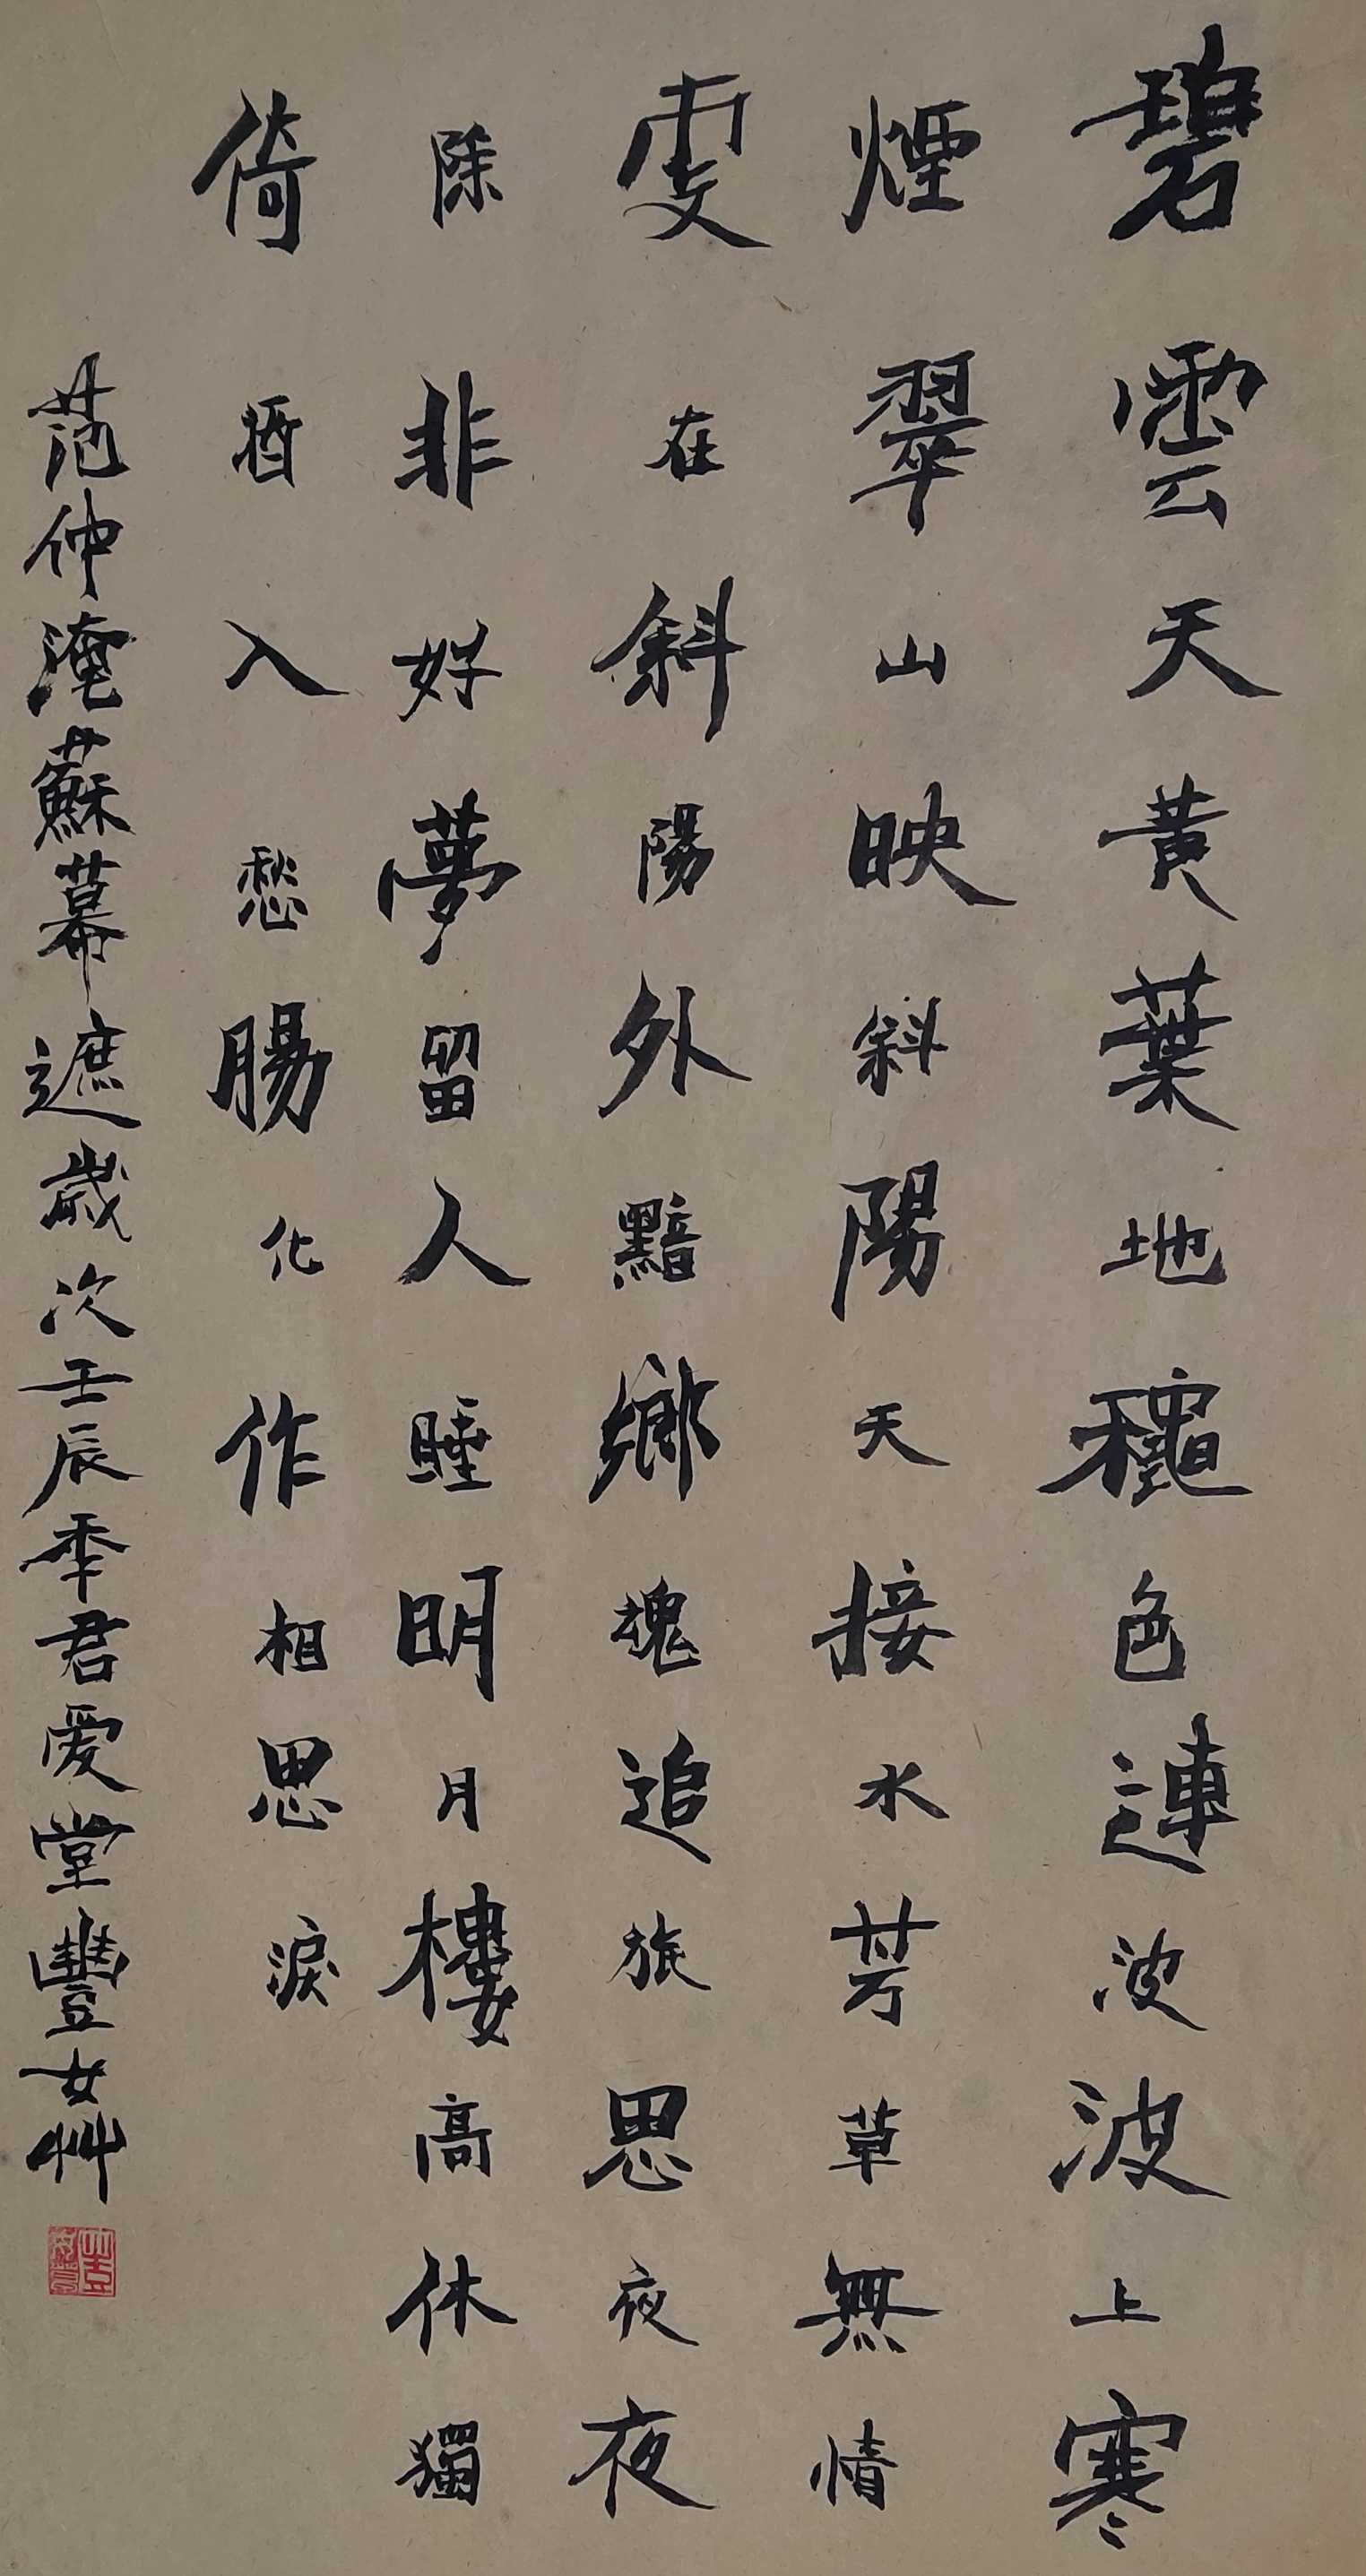 碧雲天黄葉地穐色連波波上寒
煙翠山映斜陽天接水芳草無情
更在斜陽外黯鄉魂追旅思夜夜
除非好夢留人睡明月樓高休獨
倚酒入愁腸化作相思淚
范仲淹蘇幕遮歲次壬辰季君愛堂豐女艸